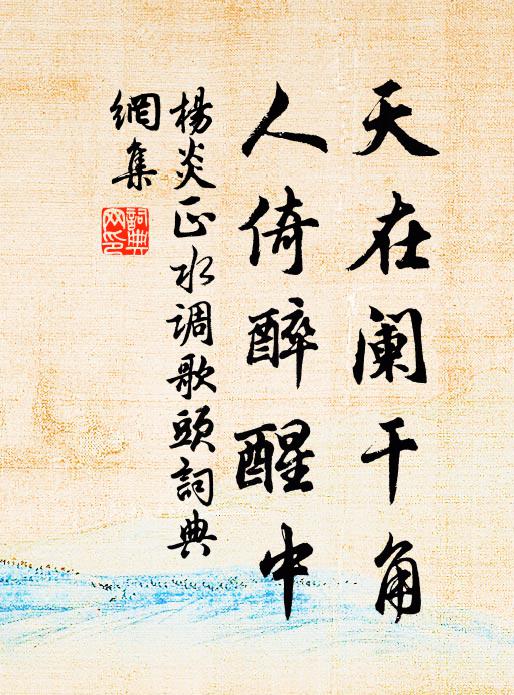 天在阑干角
人倚醉醒中
楊炎正水调歌頭詞典
網集
詞典
网印